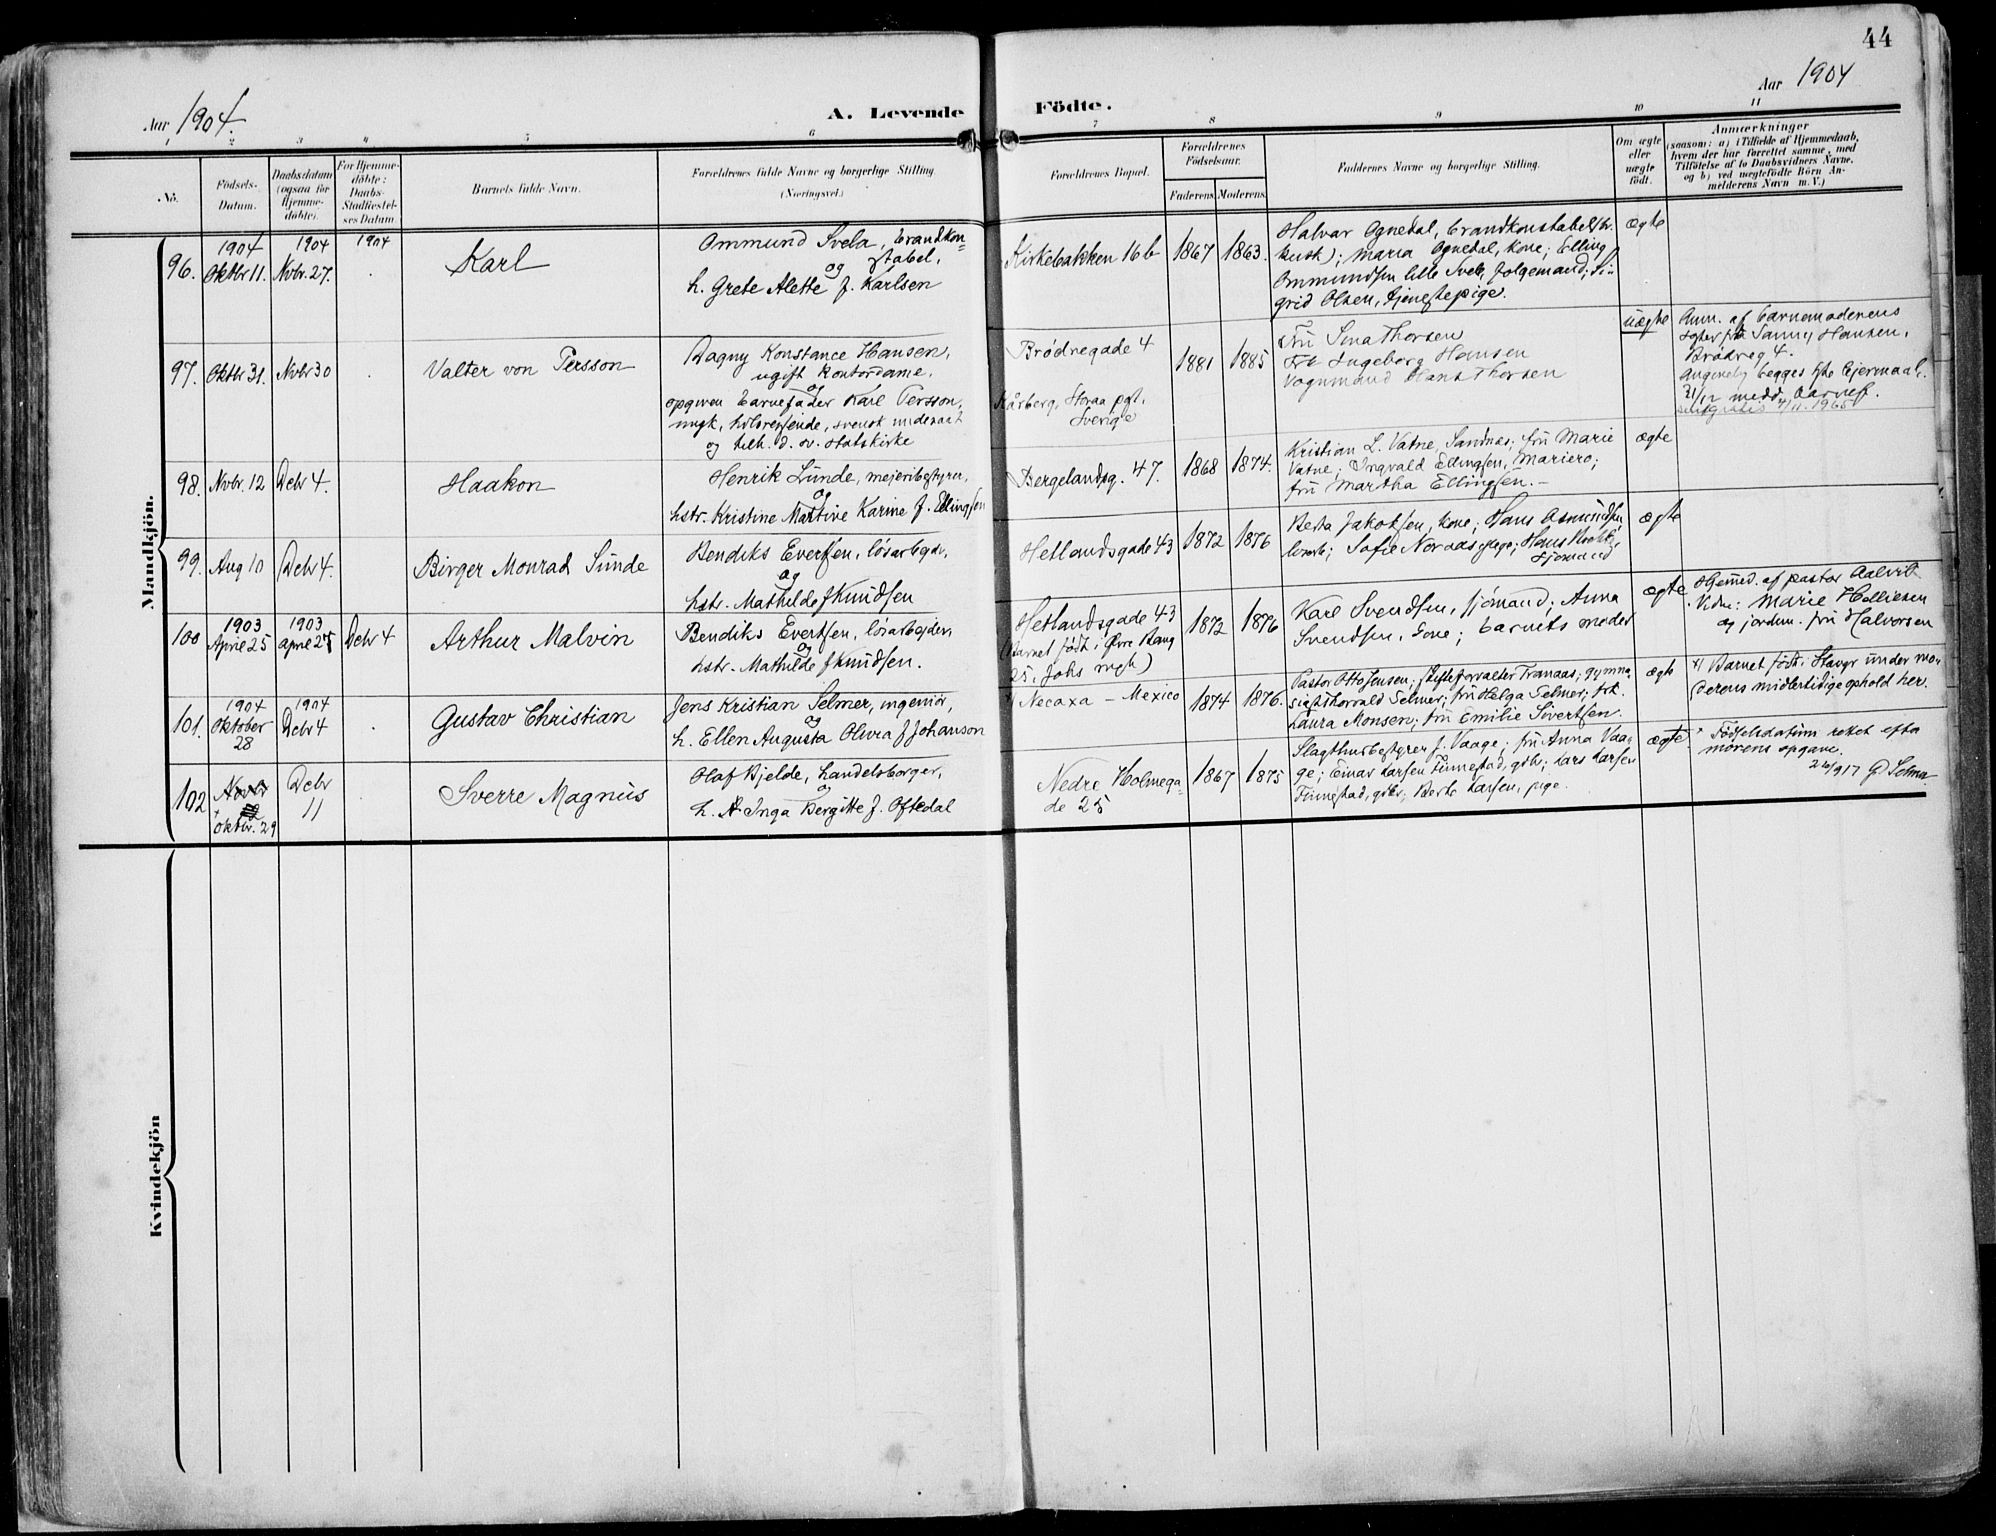 44
Aar 1904.
A. Levende
Födte.
Aar 1904
1 2 3 4 5 6 7 8 9 10 11
No.
Födsels-
Datum.
Daabsdatum
(ogsaa for
Hjemme-
döbte).
For Hjemme-
döbte:
Daabs-
Stadfæstel-
ses Datum.
Barnets fulde Navn.
Forældrenes fulde Navne og borgerlige Stilling
(Næringsvei.)
Forældrenes Bopæl.
Forældrenes
Födselsaar.
Faderens Moderens
Faddernes Navne og borgerlige Stilling.
Om ægte
eller
uægte
födt.
Anmærkninger
(saasom: a) i Tilfælde af Hjemmedaab,
hvem der har forrettet samme, med
Tilföielse af to Daabsvidners Navne,
og b) ved uegtefödte Börn An-
melderens Navn m. V.)
Mandkjön.
96.
1904
Oktbr 11.
1904
Nvbr. 27.
1904
Karl
Ommund Svela, brandkon-
stabel,
og
h. Grete Alette f. Karlsen
Kirkebakken 16 b
1867
1863.
Halvar Ognedal, brandkonstabel (hr.
kusk); Maria Ognedal, kone; Elling
Ommundsen lille Svela, folgemand; Si-
grid Olsen, tjenestepige.
ægte
97.
Oktbr 31.
Nvbr 30
Valter von Persson
Dagny Konstance Hansen,
ugift kontordame,
og
opgiven barnefader Karl Persson,
ungk, svensk undersaat
og tilh. d. sv. statskirke
Brödregade 4
Sverige
1881
1885
Fru Sina Thorsen
Frk Ingeborg Hansen
Vognmand Hans Thorsen
uægte
Anm. af barnemoderens
Hansen,
Brödreg 4.
begges 1ste leiermaal.
21/12 medd.
4/11 1965
98.
Nvbr. 12
Debr 4.
Haakon
Henrik Lunde, meieribestyrer,
og
hstr. Kristine Martine Karine f. Ellingsen
Bergelandsg. 47.
1868
1874.
Kristian L. Vatne, Sandnes; fru Marie
Vatne; Ingvald Ellingsen, Mariero;
fru Martha Ellingsen. -
ægte
99.
Aug 10
Debr 4.
Birger Monrad Sunde
Bendiks Evertsen, lösarbeider,
og
hstr. Mathilde f Knudsen
Hetlandsgade 43
1872
1876
Berta Jakobsen, kone; Hans Asmundsen
Sofie Noraas pige; Hans
sjömand
ægte
100
1903
April 25
1903
April 27
Debr 4
Arthur Malvin
Bendiks Evertsen, lösarbeider,
og
hstr. Mathilde f Knudsen.
Hetlandsgade 43
(Barnet födt i Øvre
25, Johs mgh)
1872
1876
Karl Svendsen, sjömand; Anna
Svendsen, kone; barnets moder
ægte
Hjemmed. af pastor Aalvik
Vidne: Marie
og jordm. fru Halvorsen
101.
1904
Oktober
28
1904
Debr 4
Gustav Christian
Jens Kristian Selmer, ingeniör,
og
h. Ellen Augusta Olivia f Johanson
Necaxa - Mexico
1874
1876.
Pastor Otto Jensen; skifteforvalter Tranaas; gymna-
siast Thorvald Selmer; fru Helga Selmer; frk.
Laura Monsen; fru Emilie Sivertsen.
ægte
Barnet födt i Stavgr under mo-
derens midlertidige ophold her.
102
Novbr
Oktbr. 29
Debr
11
Sverre Magnus
Olaf Bjelde, handelsborger,
og
h. Inga Bergitte f. Oftedal
Nedre Holmega-
de 25
1867
1875
Slagthusbestyrer J. Vaage; fru Anna Vaa-
ge; Einar Larsen Finnestad, gdbr; Lars Larsen
Finnestad, gdbr; Berte Larsen, pige.
ægte
* Födselsdatum rettet efter
morens opgave.
26/9 17 G Selmer
Kvindekjön